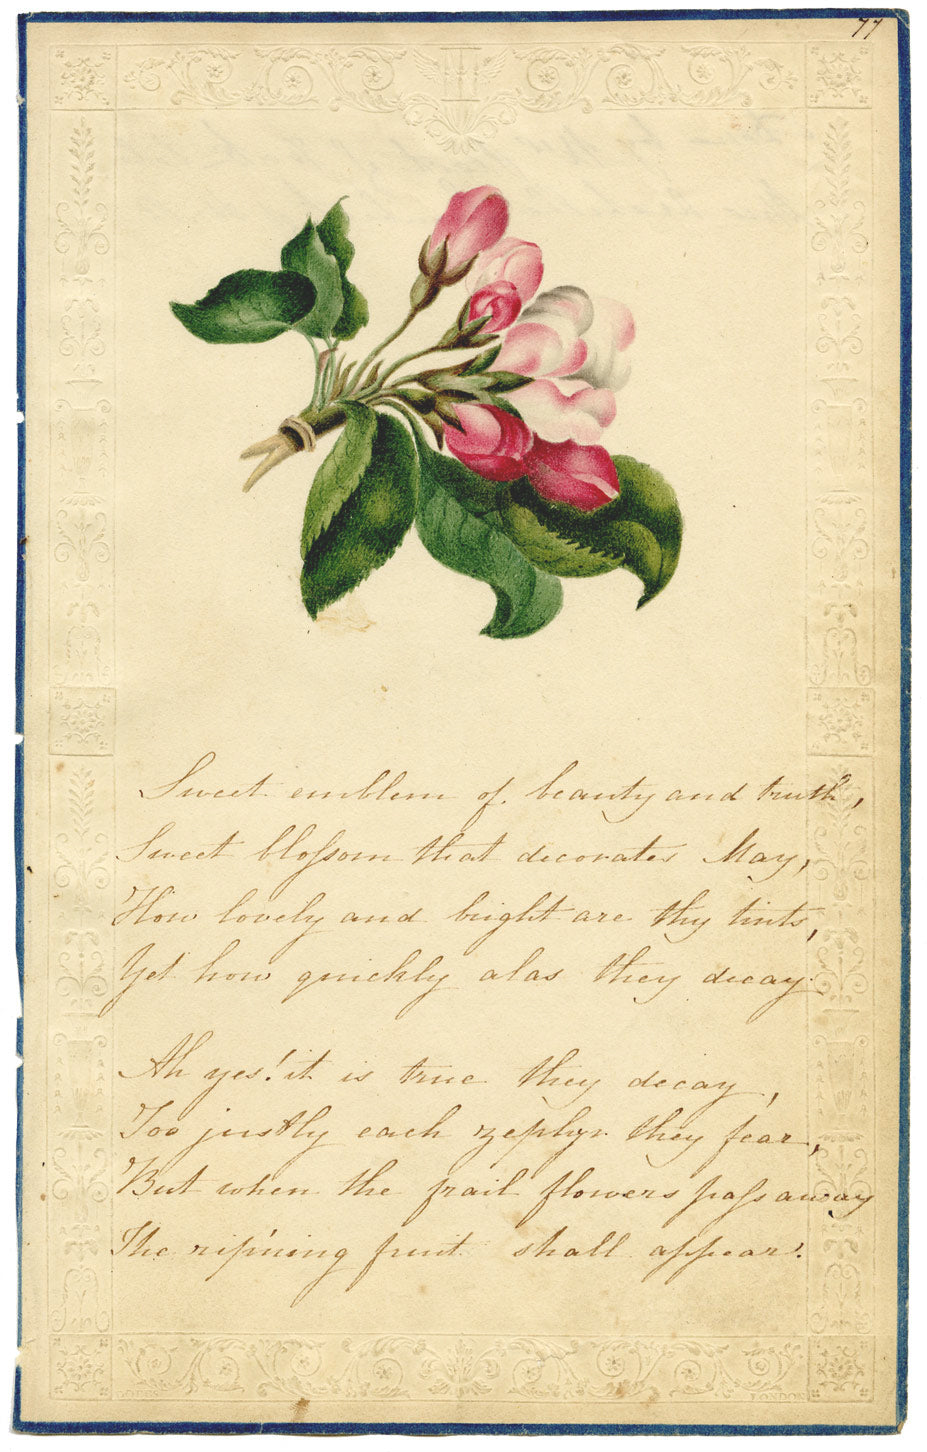 77
Sweet emblem of beauty and truth,
Sweet bloſsom that decorates May,
How lovely and bright are thy tints,
Yet how quickly alas they decay.
Ah yes! it is true they decay,
Too justly each zephyr they fear,
But when the frail flowers paſs away
The rip'ning fruit shall appear.
DOBBS
LONDON